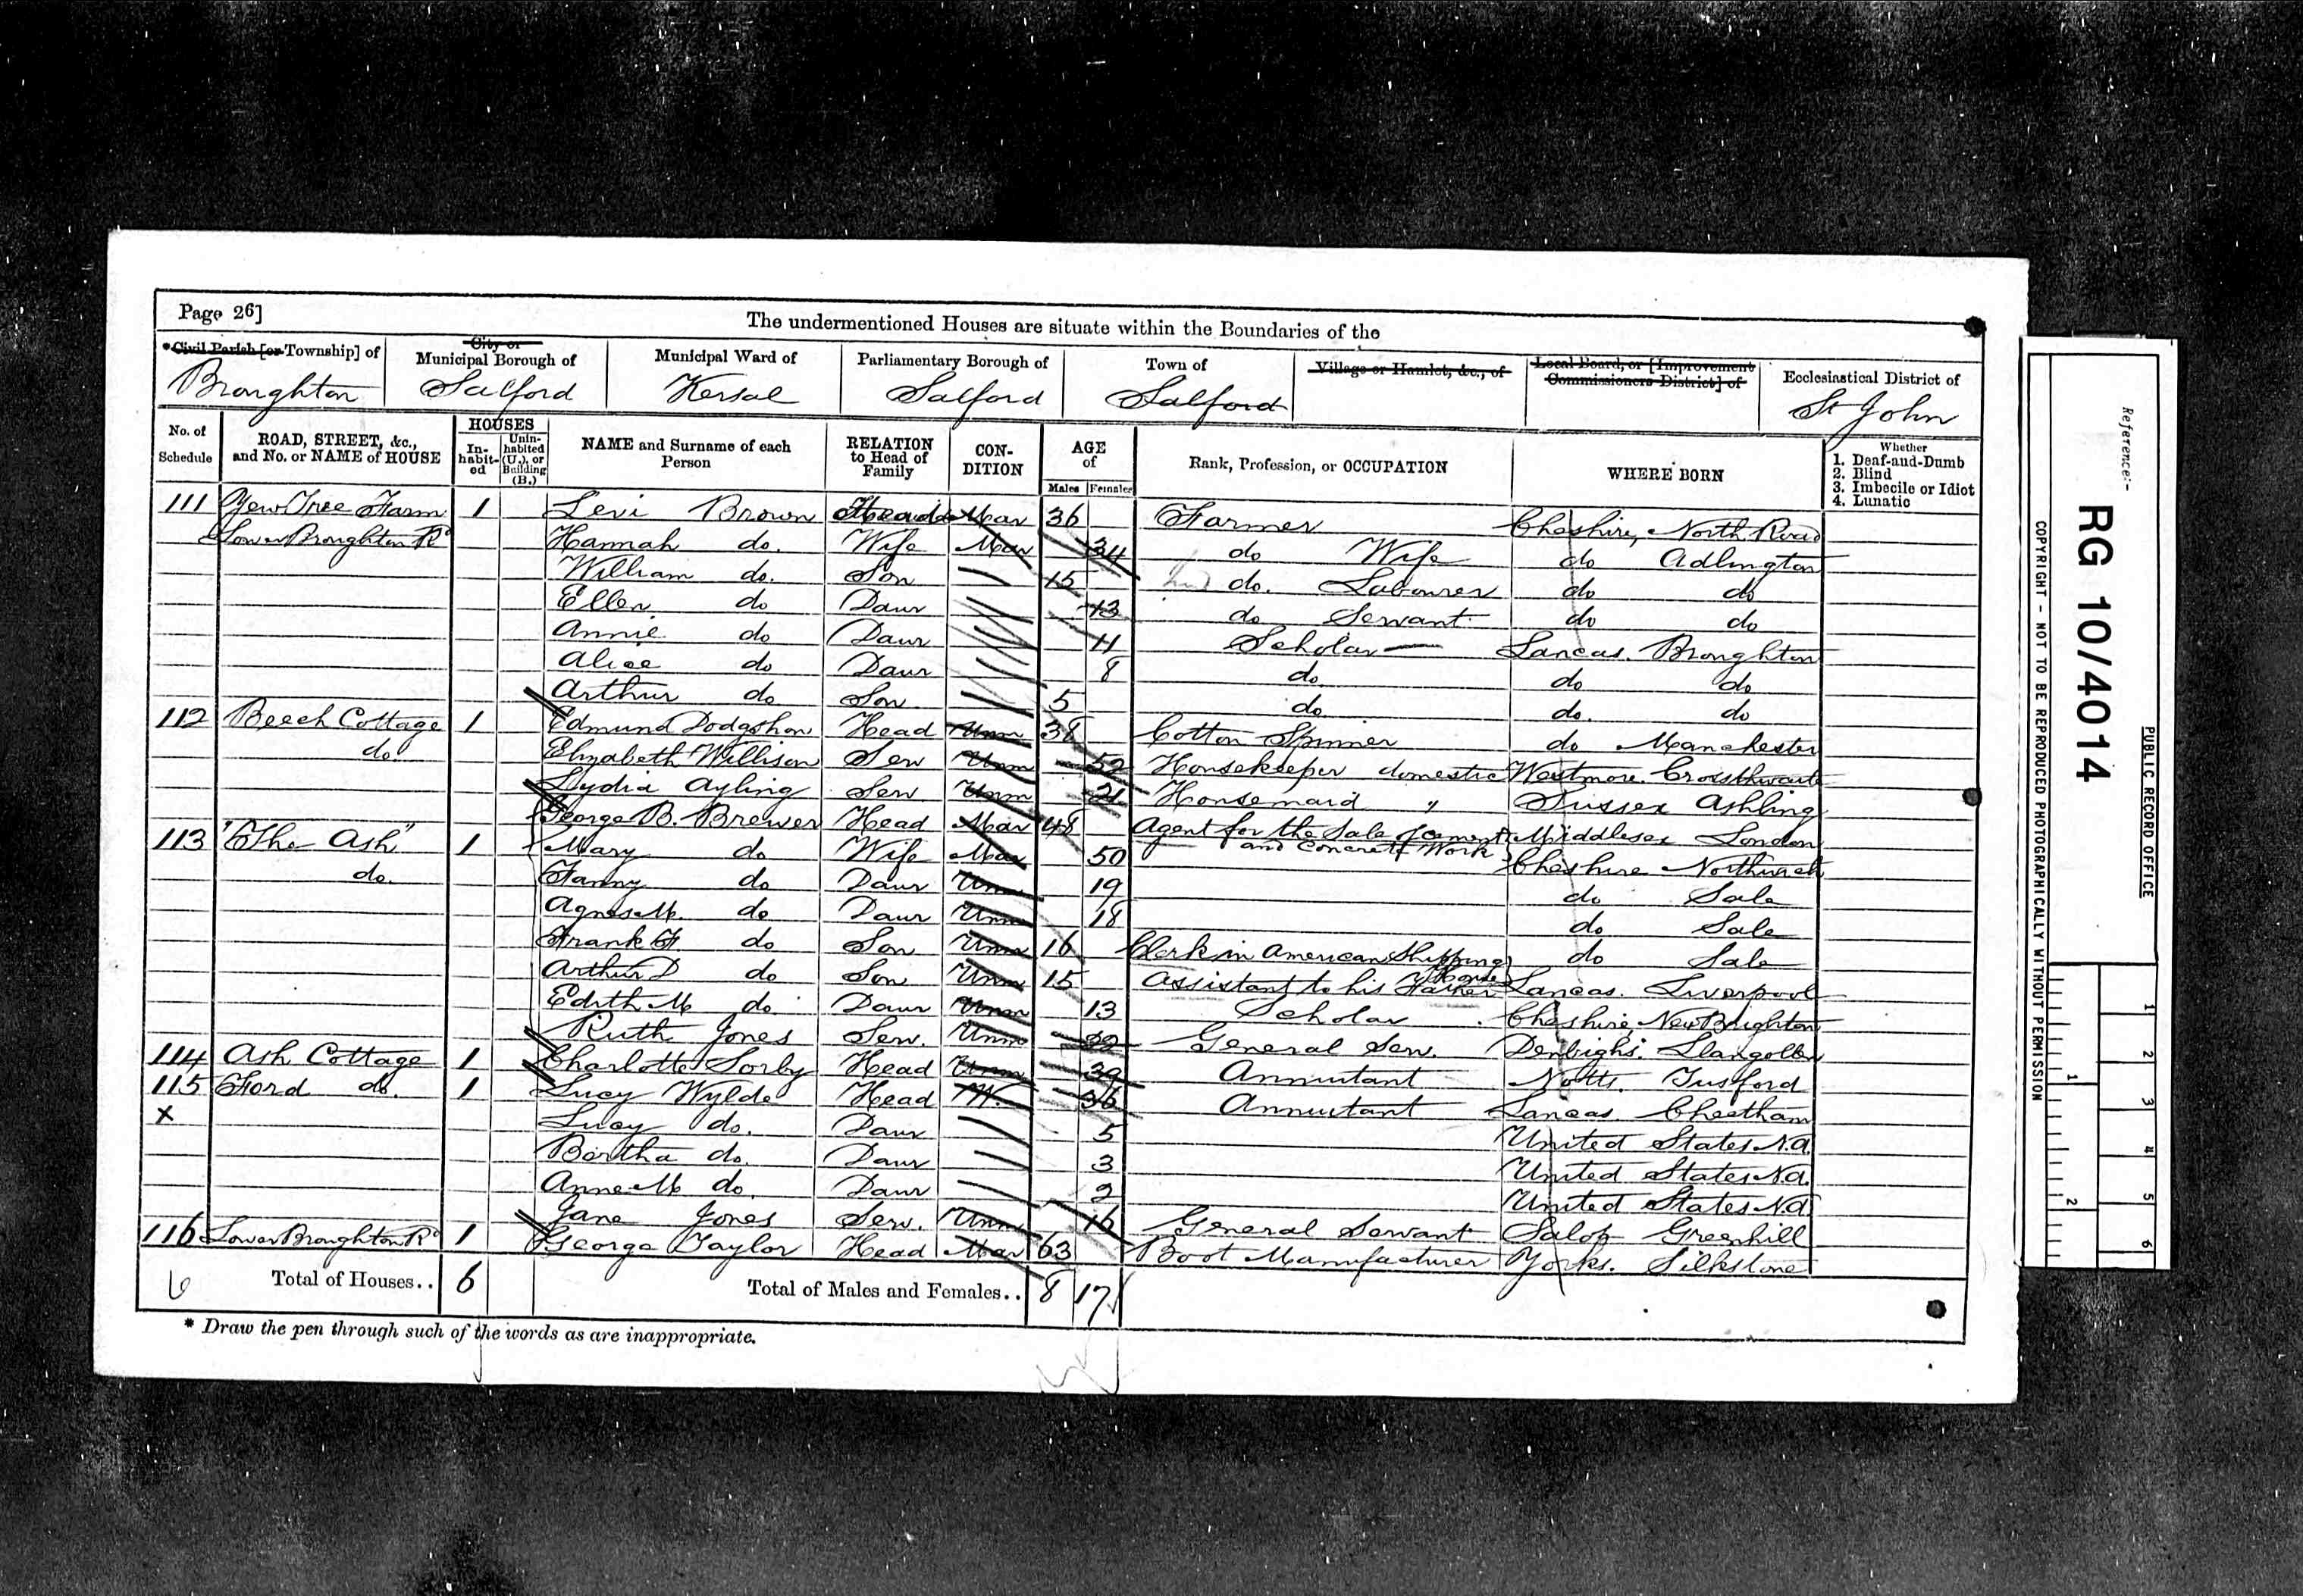 Page 26]
The undermentioned Houses are situate within the Boundaries of the
*Civil Parish [or Township] of
City or Municipal Borough of
Municipal Ward of
Parliamentary Borough of
Town of
Village or Hamlet, &c., of
Local Board, or [Improvement Commissioners District] of
Ecclesiastical District of
Broughton Salford Kersal Salford Salford St John
No. of Schedule
ROAD, STREET, &c., and No. or NAME of HOUSE
HOUSES
In-habit-ed
Unin-habited (U.), or Building (B.)
NAME and Surname of each Person
RELATION to Head of Family
CON-DITION
AGE of
Males Females
Rank, Profession, or OCCUPATION
WHERE BORN
Whether
1. Deaf-and-Dumb
2. Blind
3. Imbecile or Idiot
4. Lunatic
111 Yew Tree Farm 1 Levi Brown Head Mar 36 Farmer Cheshire, North Road
Lower Broughton Rd Hannah do. Wife Mar 34 do Wife do Adlington
William do. Son 15 do. Labourer do do
Ellen do Daur 13 do Servant do do
Annie do Daur 11 Scholar Lancas. Broughton
Alice do Daur 8 do do do
Arthur do Son 5 do do. do
112 Beech Cottage 1 Edmund Dodgshon Head Unm 38 Cotton Spinner do Manchester
do. Elizabeth Willison Serv Unm 52 Housekeeper domestic Westmore. Crosthwaite
Lydia Ayling Serv Unm 21 Housemaid " Sussex Ashling
George B. Brewer Head Mar 48 Agent for the Sale of Cement and Concrete Work Middlesex London
113 "The Ash" 1 Mary do Wife Mar 50 Cheshire Northwich
do. Fanny do Daur Unm 19 do Sale
Agnes M. do Daur Unm 18 do Sale
Frank F. do Son Unm 16 Clerk in American Shipping House do Sale
Arthur D do Son Unm 15 Assistant to his Father Lancas. Liverpool
Edith M do. Daur Unm 13 Scholar Cheshire, New Brighton
Ruth Jones Serv. Unm General Serv. Denbighs. Llangollen
114 Ash Cottage 1 Charlotte Sorby Head Unm 39 Annuitant Notts. Tuxford
115 Ford do. 1 Lucy Wylde Head W. 36 Annuitant Lancas Cheetham
x Lucy do. Daur 5 United States N.A.
Bertha do. Daur 3 United States N.A.
Anne M do. Daur 2 United States N.A.
Jane Jones Serv. Unm 16 General Servant Salop Greenhill
116 Lower Broughton Rd 1 George Taylor Head Mar 63 Boot Manufacturer Yorks. Silkstone
6 Total of Houses.. 6 Total of Males and Females.. 8 17
* Draw the pen through such of the words as are inappropriate.
Reference:-
RG 10/4014
PUBLIC RECORD OFFICE
COPYRIGHT - NOT TO BE REPRODUCED PHOTOGRAPHICALLY WITHOUT PERMISSION
1 2 3 4 5 6
1 2